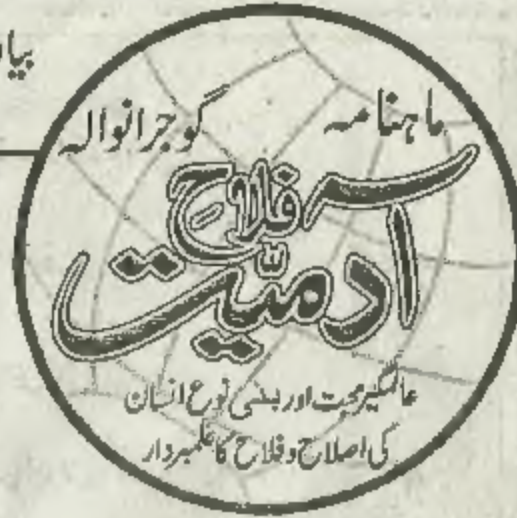 ماہنامہ گوجرانوالہ
فلاحِ
آدمیّت
عالمگیر محبت اور بنی نوع انسان
کی اصلاح و فلاح کا علمبردار